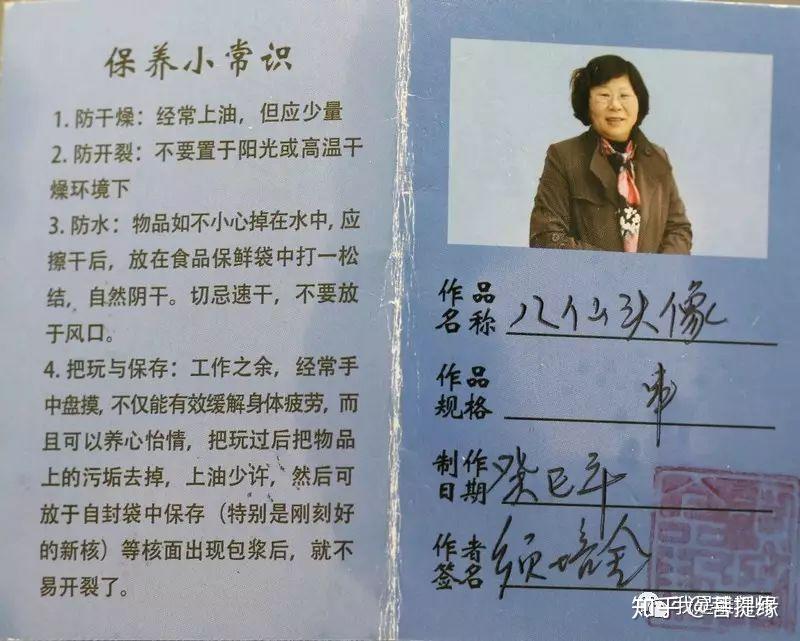 保养小常识
1. 防干燥：经常上油，但应少量
2. 防开裂：不要置于阳光或高温干
燥环境下
3. 防水：物品如不小心掉在水中，应
擦干后，放在食品保鲜袋中打一松
结，自然阴干。切忌速干，不要放
于风口。
4. 把玩与保存：工作之余，经常手
中盘摸，不仅能有效缓解身体疲劳，而
且可以养心怡情，把玩过后把物品
上的污垢去掉，上油少许，然后可
放于自封袋中保存（特别是刚刻好
的新核）等核面出现包浆后，就不
易开裂了。
作品名称 八仙头像
作品规格 串
制作日期 癸巳年
作者签名 须培金
知乎 @菩提缘